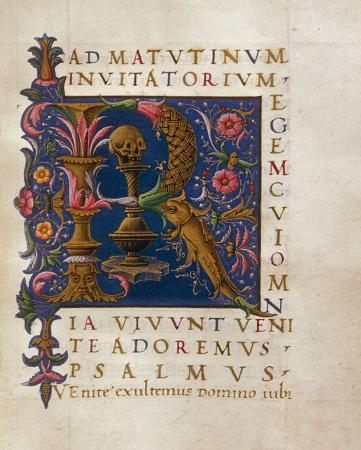 AD MATUTINUM
INUITATORIUM
R
EGEM CUI OMN
IA UIUUNT UENI
TE ADOREMUS
PSALMUS
Uenite exultemus domino iubi